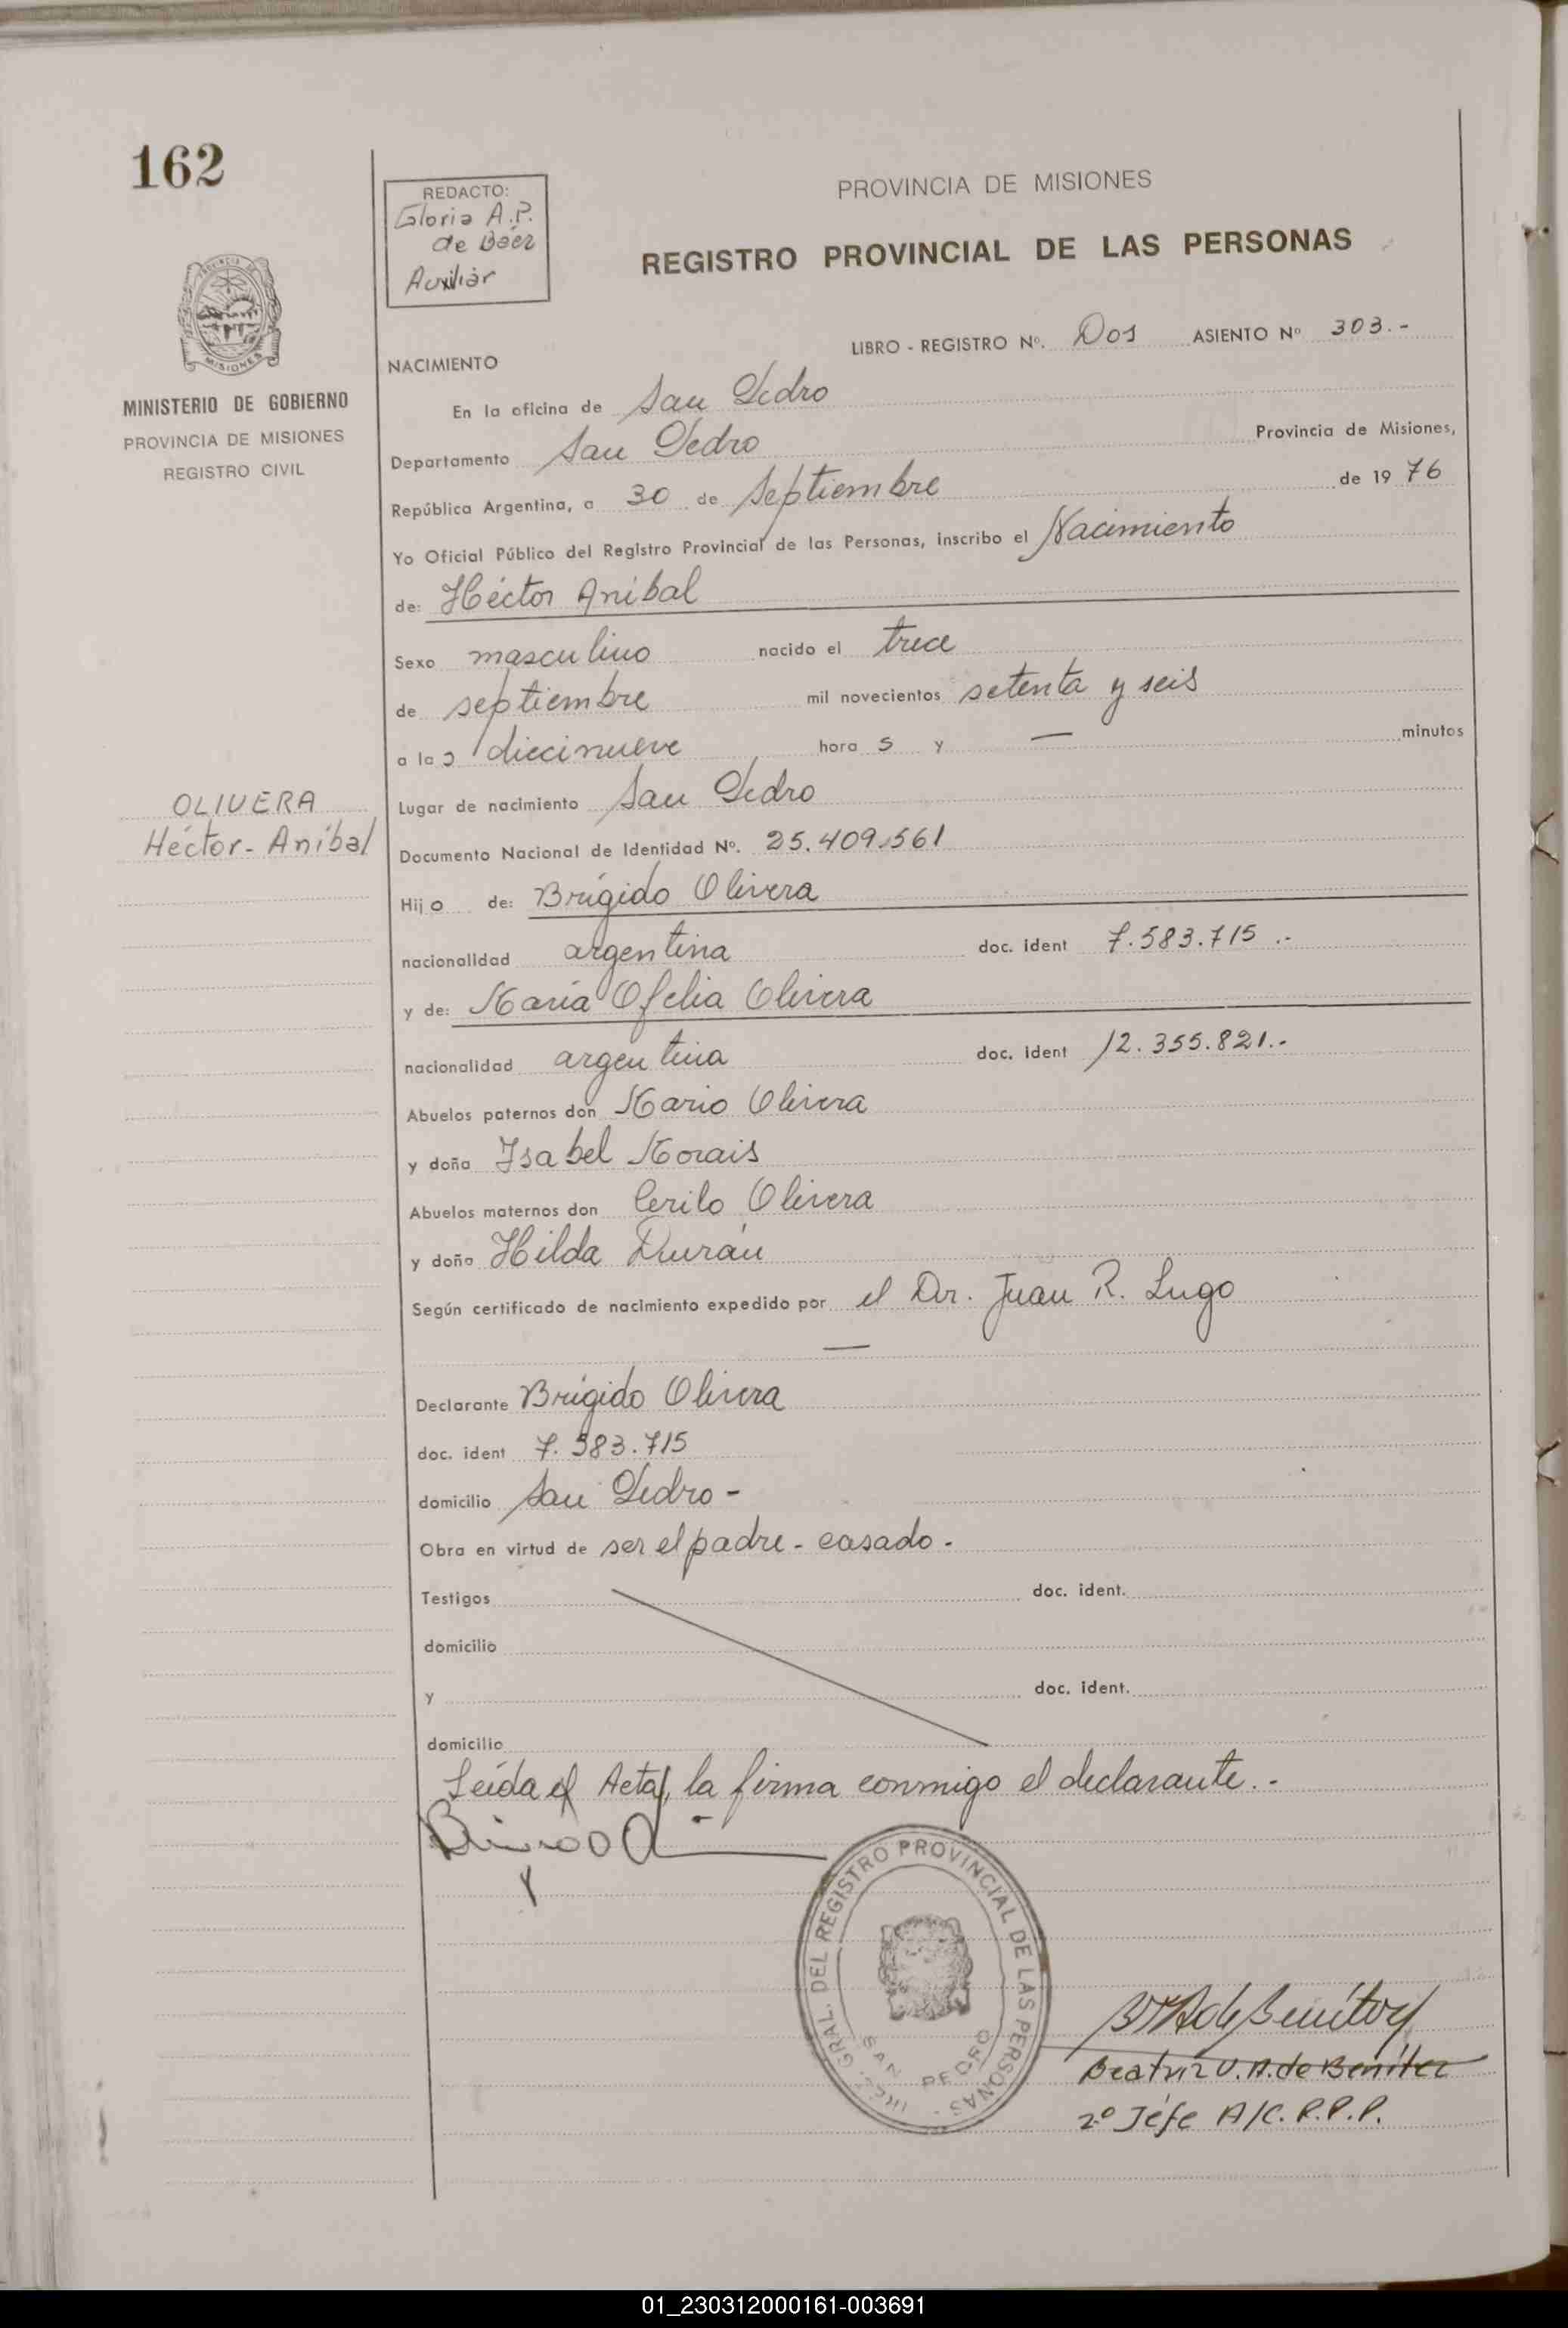 162
REDACTO:
Gloria A.P.
de Báez
Auxiliar
PROVINCIA DE MISIONES
REGISTRO PROVINCIAL DE LAS PERSONAS
PROVINCIA DE
MISIONES
MINISTERIO DE GOBIERNO
PROVINCIA DE MISIONES
REGISTRO CIVIL
LIBRO - REGISTRO Nº. Dos ASIENTO Nº 303.-
NACIMIENTO
En la oficina de San Pedro
Departamento San Pedro Provincia de Misiones,
República Argentina, a 30 de Septiembre de 19 76
Yo Oficial Público del Registro Provincial de las Personas, inscribo el Nacimiento
de: Héctor Aníbal
Sexo masculino nacido el trece
de septiembre mil novecientos setenta y seis
a la s diecinueve hora s y — minutos
OLIVERA
Héctor-Aníbal
Lugar de nacimiento San Pedro
Documento Nacional de Identidad Nº. 25.409.561
Hij o de: Brígido Olivera
nacionalidad argentina doc. ident 7.583.715.-
y de: María Ofelia Olivera
nacionalidad argentina doc. ident 12.355.821.-
Abuelos paternos don Mario Olivera
y doña Isabel Morais
Abuelos maternos don Cerilo Olivera
y doña Hilda Durán
Según certificado de nacimiento expedido por el Dr. Juan R. Lugo
—
Declarante Brígido Olivera
doc. ident 7.583.715
domicilio San Pedro -
Obra en virtud de ser el padre - casado -
Testigos doc. ident.
domicilio
y doc. ident.
domicilio
Leída el Acta, la firma conmigo el declarante.-
GRAL. DEL REGISTRO PROVINCIAL DE LAS PERSONAS
SAN PEDRO
Beatriz V. A. de Benítez
2º Jefe A/C. R.P.P.
01_230312000161-003691